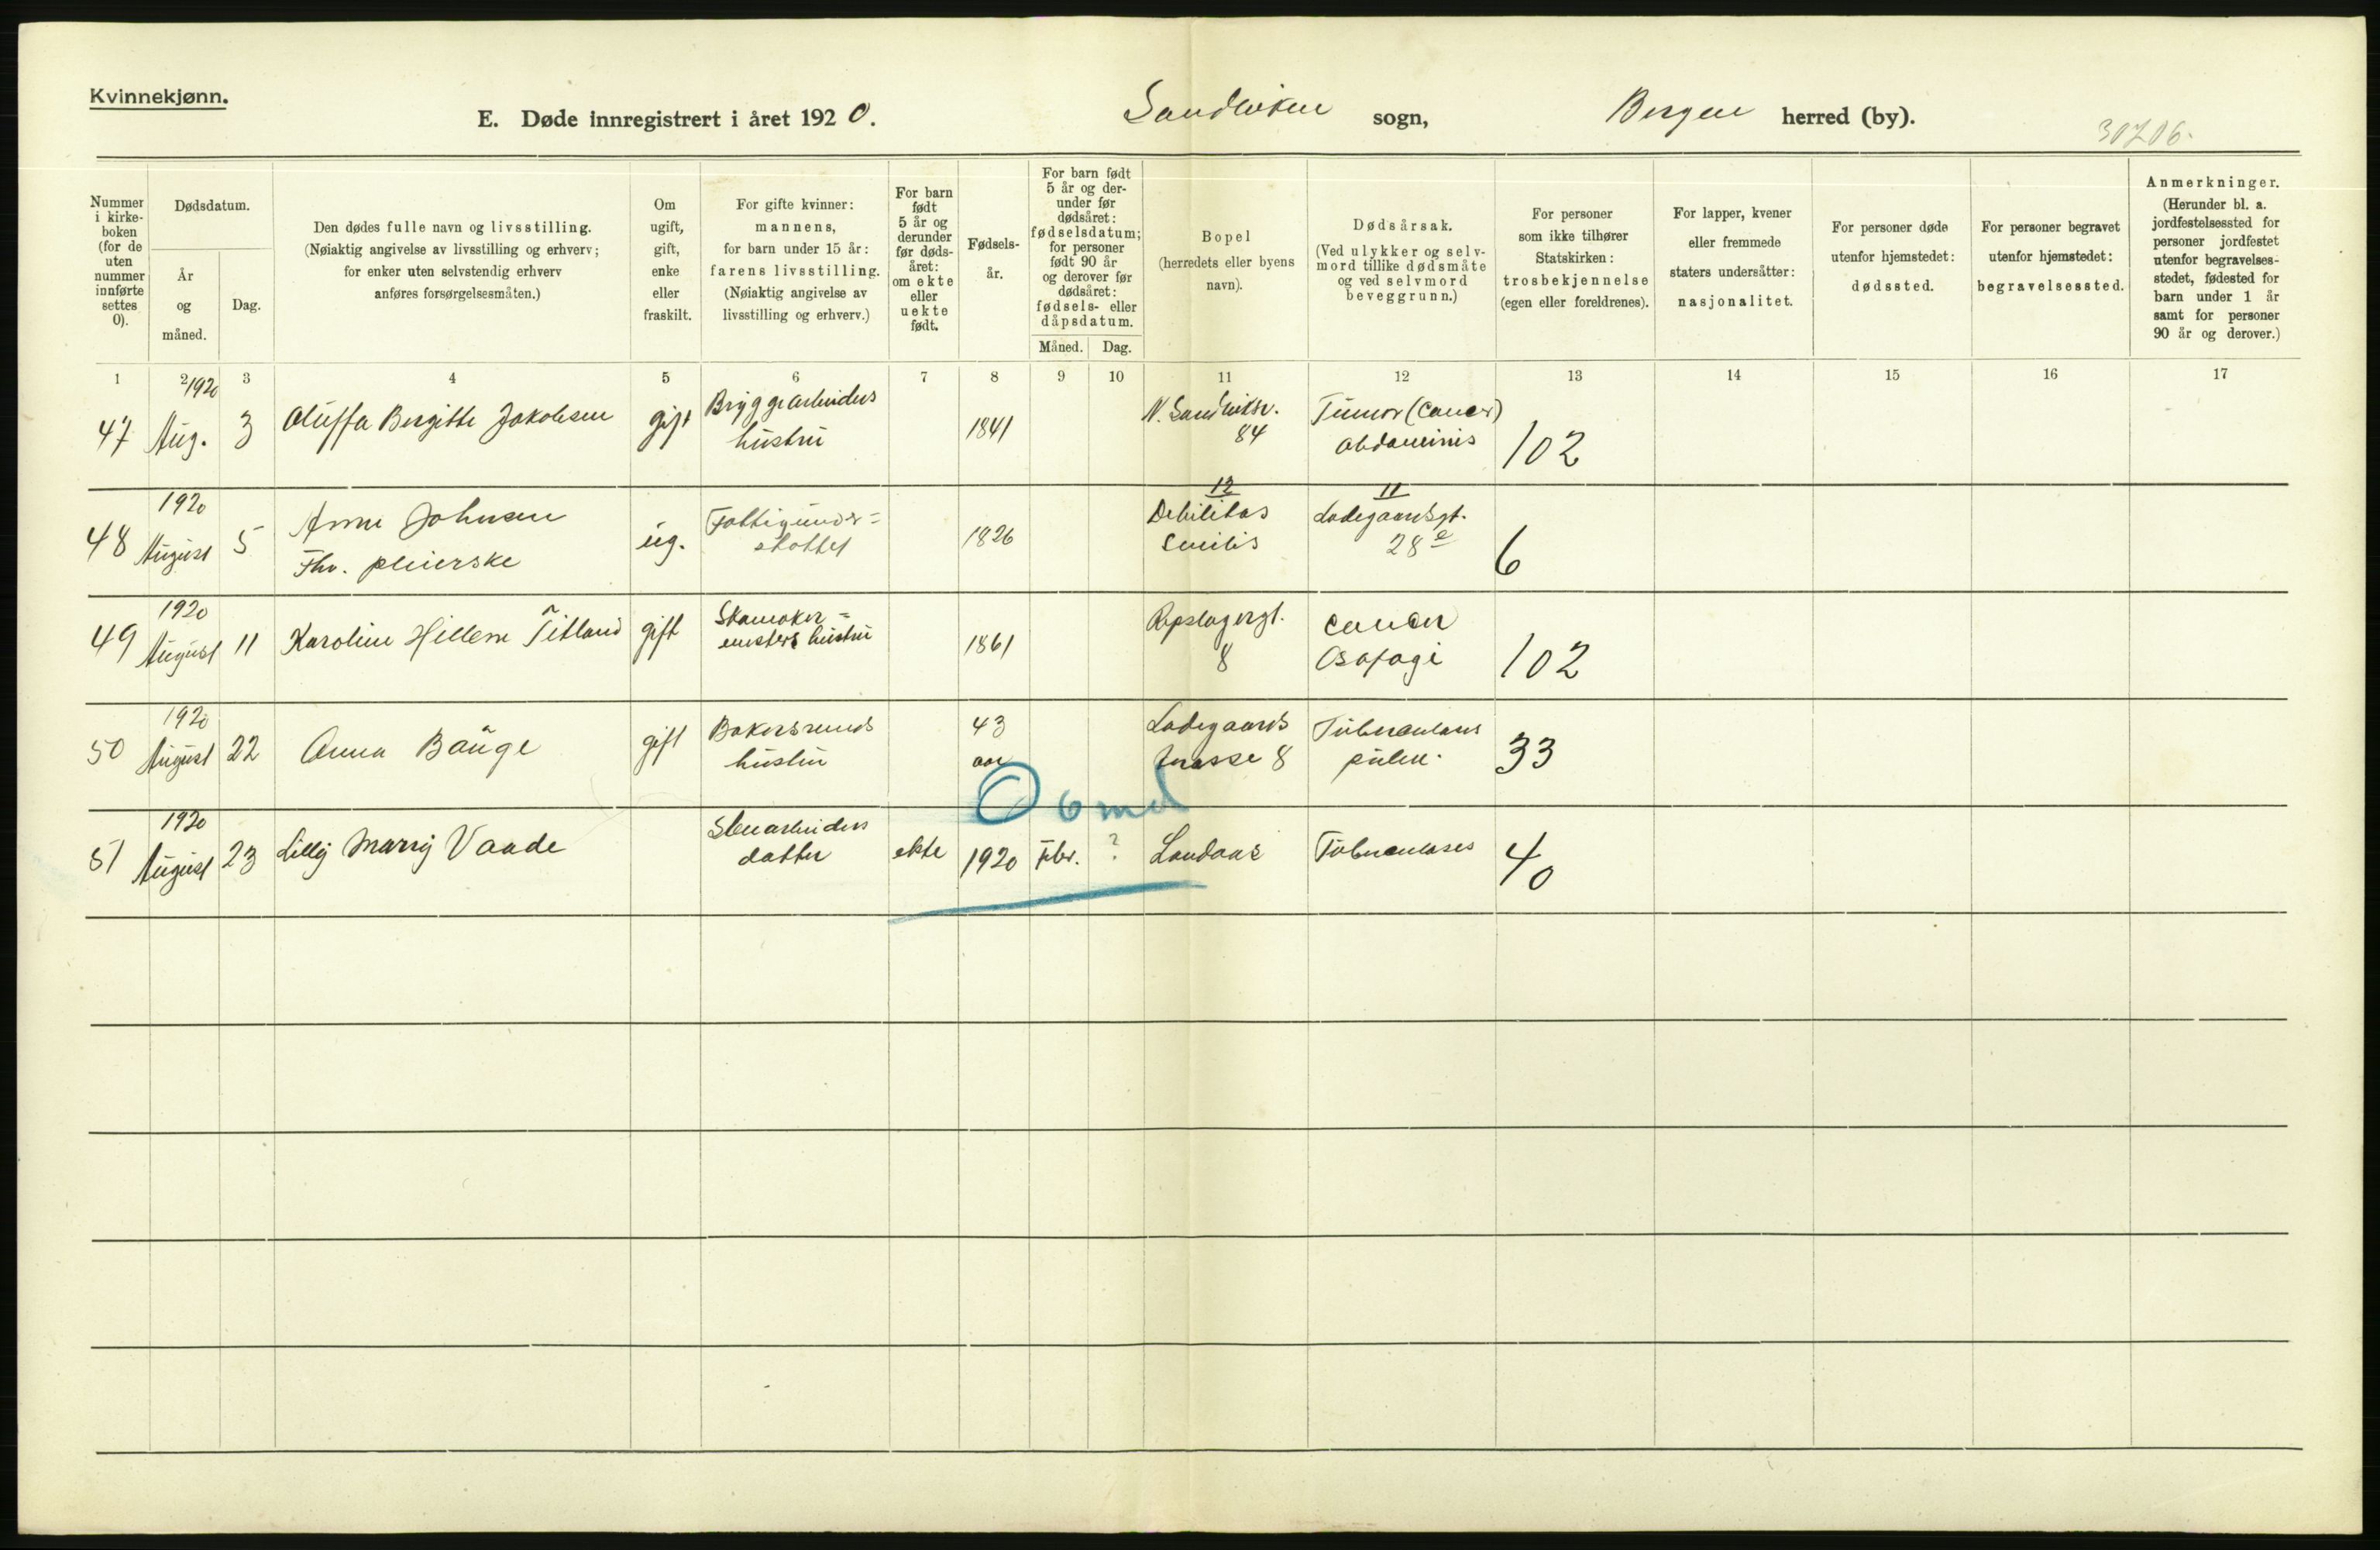 Kvinnekjønn.
E. Døde innregistrert i året 1920. Sandviken sogn, Bergen herred (by).
30206.
Nummer i kirke-boken (for de uten nummer innførte settes 0).
Dødsdatum.
År og måned.
Dag.
Den dødes fulle navn og livsstilling.
(Nøiaktig angivelse av livsstilling og erhverv;
for enker uten selvstendig erhverv
anføres forsørgelsesmåten.)
Om ugift, gift, enke eller fraskilt.
For gifte kvinner:
mannens,
for barn under 15 år:
farens livsstilling.
(Nøiaktig angivelse av
livsstilling og erhverv.)
For barn født 5 år og derunder før døds-året: om ekte eller uekte født.
Fødsels-år.
For barn født 5 år og der-under før dødsåret: fødselsdatum; for personer født 90 år og derover før dødsåret: fødsels- eller dåpsdatum.
Måned. Dag.
Bopel
(herredets eller byens
navn).
Dødsårsak.
(Ved ulykker og selv-
mord tillike dødsmåte
og ved selvmord
beveggrunn.)
For personer
som ikke tilhører
Statskirken:
trosbekjennelse
(egen eller foreldrenes).
For lapper, kvener
eller fremmede
staters undersåtter:
nasjonalitet.
For personer døde
utenfor hjemstedet:
dødssted.
For personer begravet
utenfor hjemstedet:
begravelsessted.
Anmerkninger.
(Herunder bl. a.
jordfestelsessted for
personer jordfestet
utenfor begravelses-
stedet, fødested for
barn under 1 år
samt for personer
90 år og derover.)
1 2 3 4 5 6 7 8 9 10 11 12 13 14 15 16 17
1920
47 Aug. 3 Oluffa Bergitte Jakobsen gift Bryggearbeiders hustru 1841 N. Sandviksv. 84 Tumor (Cancer) abdominis 102
1920
12 11
48 August 5 Anne Johnsen Fhv. pleierske ug. Fattigunder= støttet 1826 Debilitas senilis Ladegaardsgt. 28 e 6
1920
49 August 11 Karoline Hillem Titland gift Skomaker= mesters hustru 1861 Repslagergt. 8 Cancer Osofagi 102
1920
50 August 22 Anna Bauge gift Bakersvends hustru 43 aar Ladegaards terasse 8 Tuberculous pulm. 33
O 6 md
1920
51 August 23 Lilly Marry Vaade Stenarbeiders datter ekte 1920 Febr. ? Landaas Tuberculoses 40